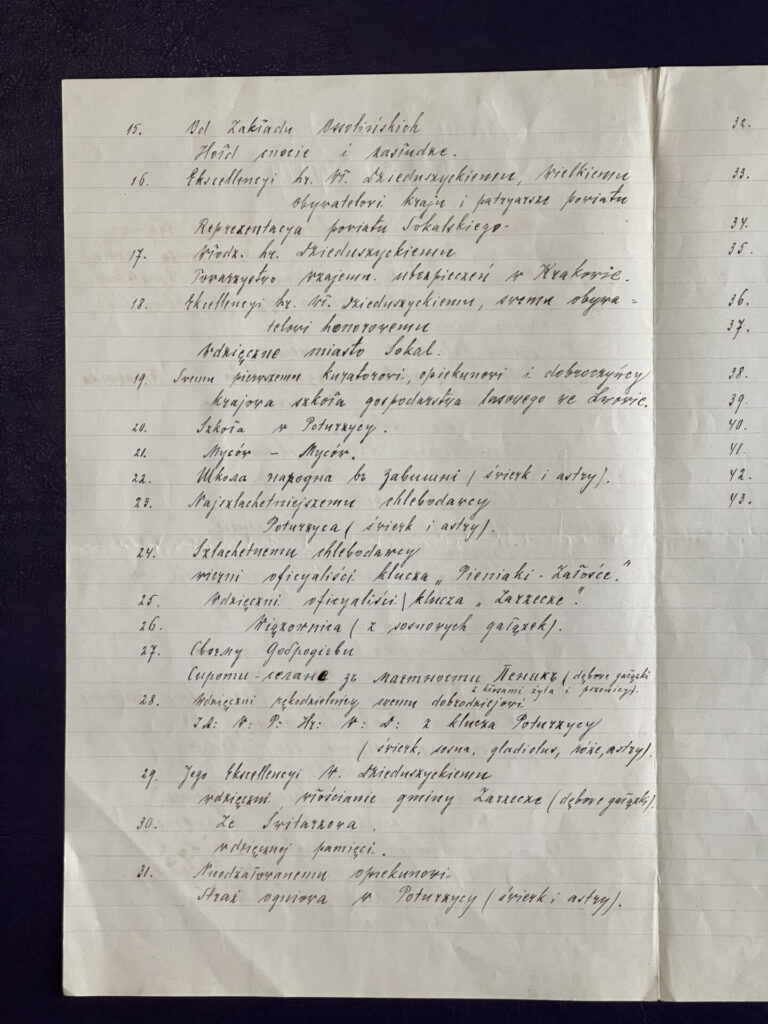 15. Od Zakładu Ossolińskich
Hołd cnocie i zasłudze.
16. Ekscellencyi hr. Wł. Dzieduszyckiemu, wielkiemu
obywatelowi kraju i patryarsze powiatu
Reprezentacya powiatu Sokalskiego.
17. Włodz. hr. Dzieduszyckiemu
Towarzystwo wzajemn. ubezpieczeń w Krakowie.
18. Ekscellencyi hr. Wł. Dzieduszyckiemu, swemu obywa-
telowi honorowemu
Wdzięczne miasto Sokal.
19. Swemu pierwszemu kuratorowi, opiekunowi i dobroczyńcy
krajowa szkoła gospodarstwa lasowego we Lwowie.
20. Szkoła w Poturzycy.
21. Myców – Myców.
22. Школа народна въ Завишни (świerk i astry).
23. Najszlachetniejszemu chlebodawcy
Poturzyca (świerk i astry).
24. Szlachetnemu chlebodawcy
wierni oficyaliści klucza „Pieniaki - Załośce."
25. Wdzięczni oficyaliści klucza „Zarzecze".
26. Wiązownica (z sosnowych gałązek).
27. Своему
Сироти-селяне зъ маєтности Пенякъ (dębowe gałązki
z kłosami żyta i pszenicy).
28. Wdzięczni rękodzielnicy swemu dobrodziejowi
J.A: W: P: Hr: W: D: z klucza Poturzycy
(świerk, sosna, gladiolus, róże, astry).
29. Jego Ekscellencyi W. Dzieduszyckiemu
wdzięczni włościanie gminy Zarzecze (dębowe gałązki).
30. Ze Switarzowa
wdzięcznej pamięci.
31. Nieodżałowanemu opiekunowi
Straż ogniowa w Poturzycy (świerk i astry).
32.
33.
34.
35.
36.
37.
38.
39.
40.
41.
42.
43.